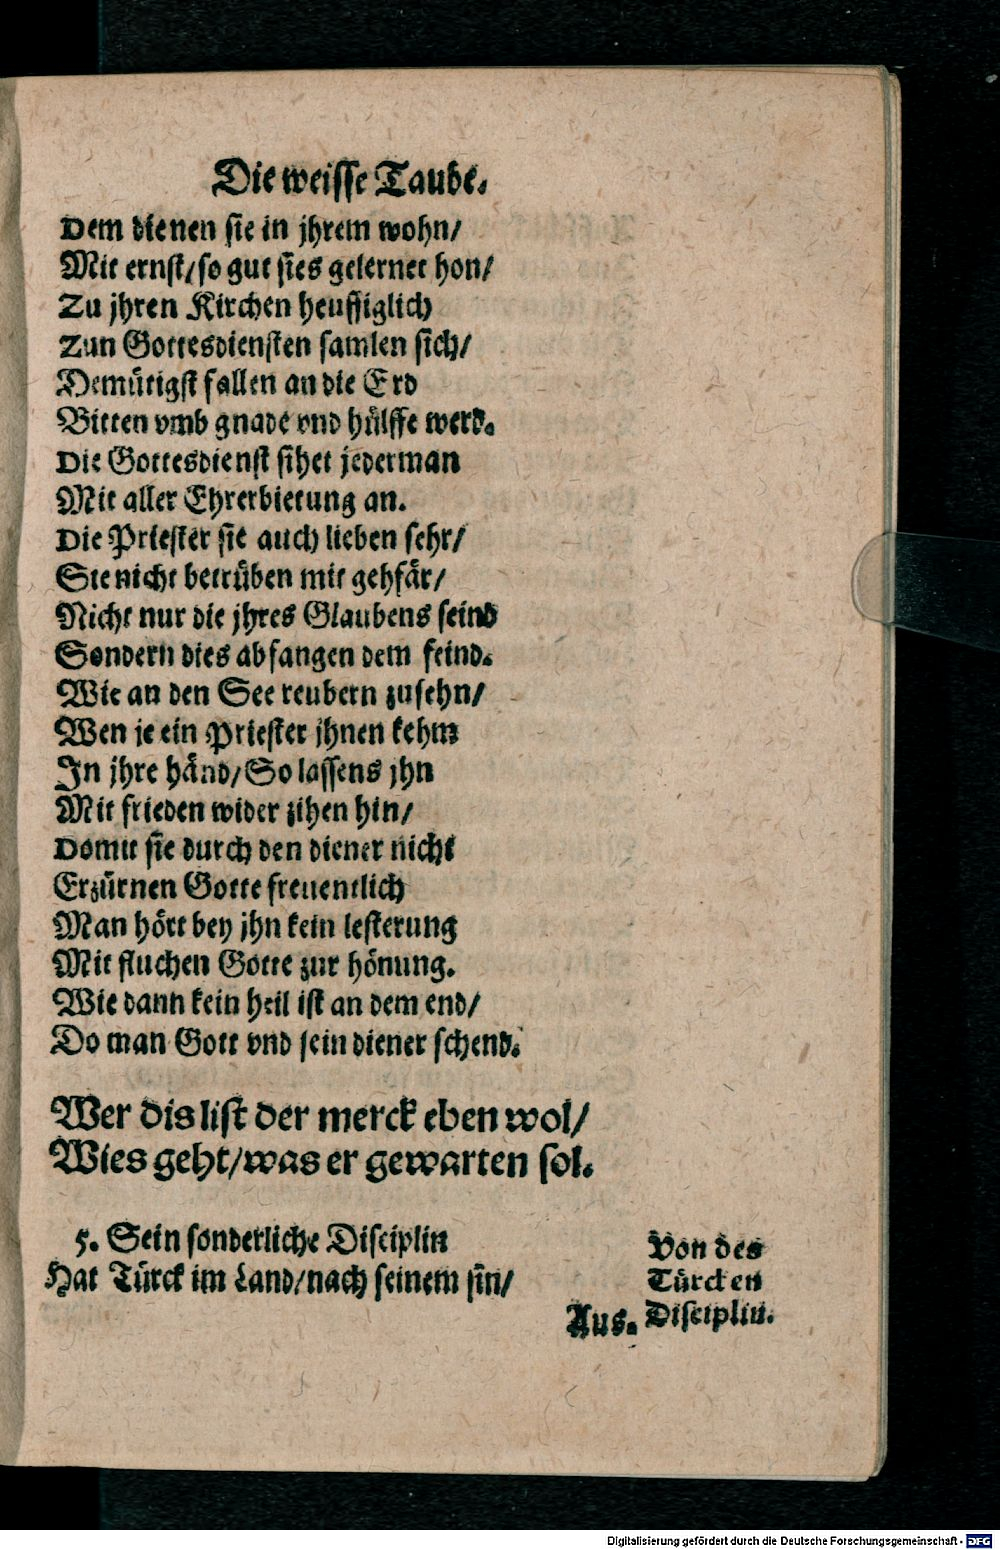 Die weisse Taube.
Dem dienen sie in jhrem wohn/
Mit ernst/so gut sies gelernet hon/
Zu jhren Kirchen heuffiglich
Zun Gottesdiensten samlen sich/
Demütigst fallen an die Erd
Bitten vmb gnade vnd hülffe werd.
Die Gottesdienst sihet jederman
Mit aller Ehrerbietung an.
Die Priester sie auch lieben sehr/
Sie nicht betrüben mit gehfär/
Nicht nur die jhres Glaubens seind
Sondern dies abfangen dem feind.
Wie an den See reubern zusehn/
Wen je ein Priester jhnen kehm
In jhre händ/So lassens jhn
Mit frieden wider zihen hin/
Domit sie durch den diener nicht
Erzürnen Gotte freuentlich
Man hört bey jhn kein lesterung
Mit fluchen Gotte zur hönung.
Wie dann kein heil ist an dem end/
Do man Gott vnd sein diener schend.
Wer dis list der merck eben wol/
Wies geht/was er gewarten sol.
5. Sein sonderliche Disciplin
Hat Türck im Land/nach seinem sin̄/
Von des
Türcken
Disciplin.
Aus.
Digitalisierung gefördert durch die Deutsche Forschungsgemeinschaft - DFG